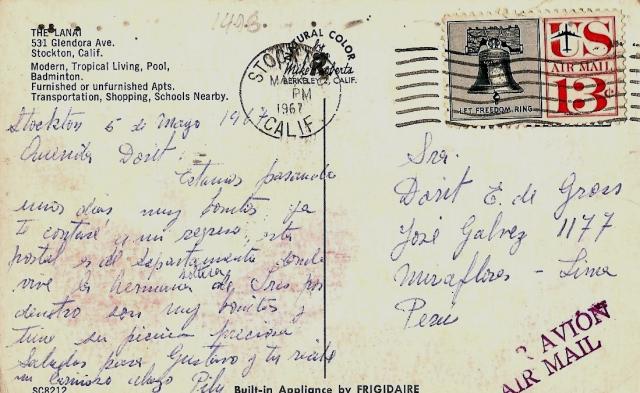 THE LANAI
531 Glendora Ave.
Stockton, Calif.
Modern, Tropical Living, Pool,
Badminton.
Furnished or unfurnished Apts.
Transportation, Shopping, Schools Nearby.
NATURAL COLOR
by
Mike Roberts
BERKELEY 2, CALIF.
STOCKTON
MA
PM
1967
CALIF
LET FREEDOM RING
US
AIR MAIL
13c
Stockton 5 de Mayo 1967
Querida Dorit:
Estamos pasando
unos dias muy bonitos, ya
te contaré a mi regreso, esta
postal es del departamento donde
vive la hermana soltera de
dentro son muy bonitos y
tiene su piscina preciosa
Saludos para Gustavo y tu recibe
un cariñoso abrazo Pily
Sra.
Dorit E. de Gross
José Galvez 1177
Miraflores - Lima
Peru
R AVION
AIR MAIL
SC8212
Built-in Appliance by FRIGIDAIRE